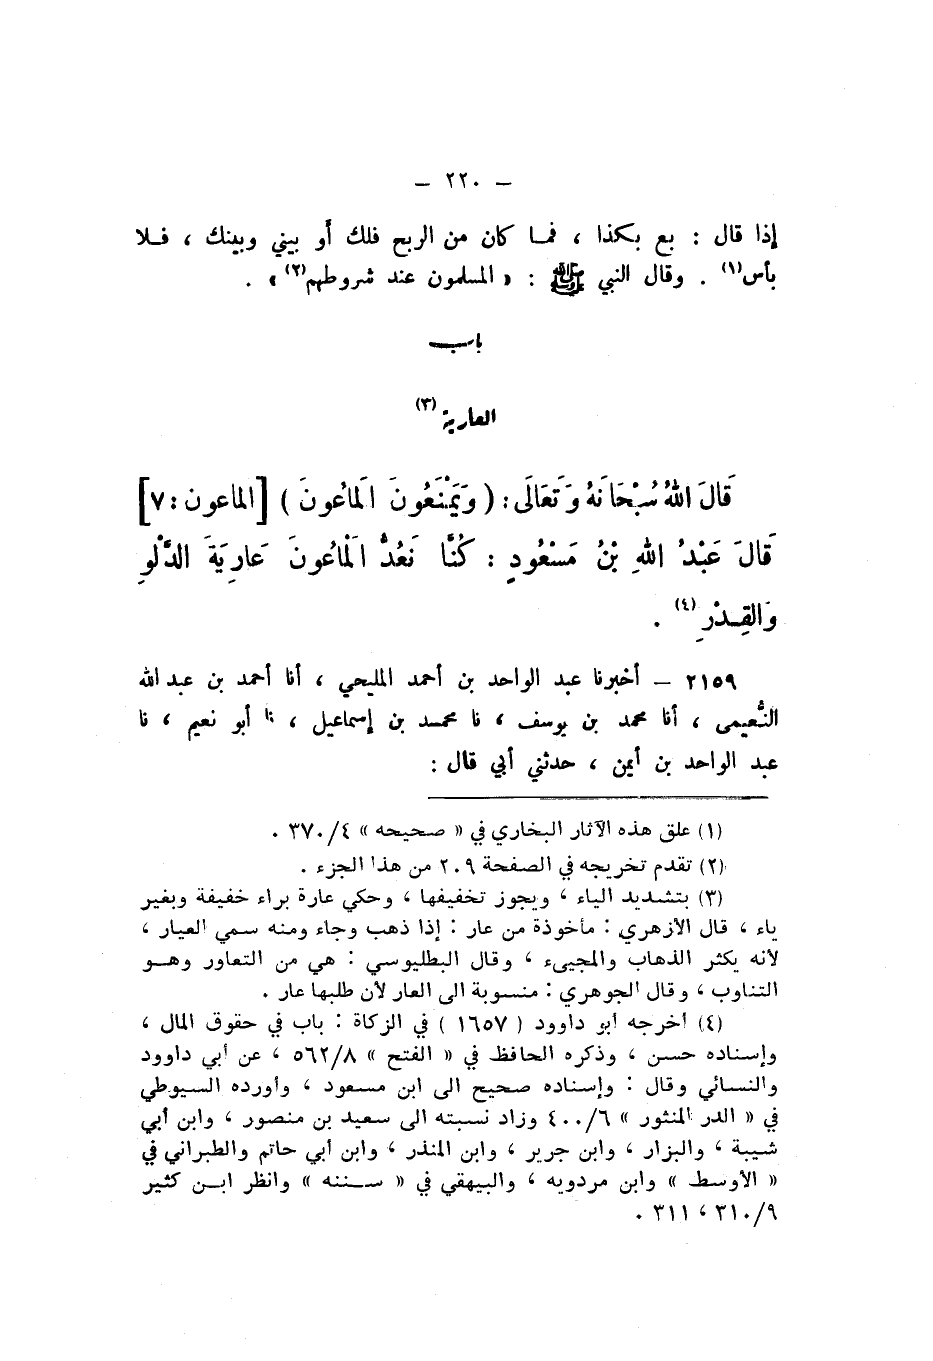 – ٢٢٠ –
إذا قال : بع بكذا ، فمـا كان من الربح فلك أو بيني وبينك ، فـلا
بأس(١) . وقال النبي ﷺ : « المسلمون عند شروطهم(٢)» .
باب
العارية (٣)
قَالَ اللهُ سُبْحَانَهُ وَتَعَالَى : ( وَيَمْنَعُونَ المَاعُونَ ) [الماعون : ٧]
قَالَ عَبْدُ اللهِ بْنُ مَسْعُودٍ : كُنَّا نَعُدُّ الْمَاعُونَ عَارِيَةَ الدَّلْوِ
وَالقِدْرِ (٤) .
٢١٥٩ – أخبرنا عبد الواحد بن أحمد المليحي ، أنا أحمد بن عبد الله
النُّعيمي ، أنا محمد بن يوسف ، نا محمـد بن إسماعيل ، نا أبو نعيم ، نا
عبد الواحد بن أيمن ، حدثني أبي قال :
(١) علق هذه الآثار البخاري في « صحيحه » ٣٧٠/٤ .
(٢) تقدم تخريجه في الصفحة ٢٠٩ من هذا الجزء .
(٣) بتشديد الياء ، ويجوز تخفيفها ، وحكي عارة براء خفيفة وبغير
ياء ، قال الأزهري : مأخوذة من عار : إذا ذهب وجاء ومنه سمي العيار ،
لأنه يكثر الذهاب والمجيىء ، وقال البطليوسي : هي من التعاور وهـو
التناوب ، وقال الجوهري : منسوبة الى العار لأن طلبها عار .
(٤) أخرجه أبو داوود ( ١٦٥٧ ) في الزكاة : باب في حقوق المال ،
وإسناده حسن ، وذكره الحافظ في « الفتح » ٥٦٢/٨ ، عن أبي داوود
والنسائي وقال : وإسناده صحيح الى ابن مسعود ، وأورده السيوطي
في « الدر المنثور » ٤٠٠/٦ وزاد نسبته الى سعيد بن منصور ، وابن أبي
شيبة ، والبزار ، وابن جرير ، وابن المنذر ، وابن أبي حاتم والطبراني في
« الأوسط » وابن مردويه ، والبيهقي في « سـننه » وانظر ابـن كثير
٣١٠/٩ ، ٣١١ .